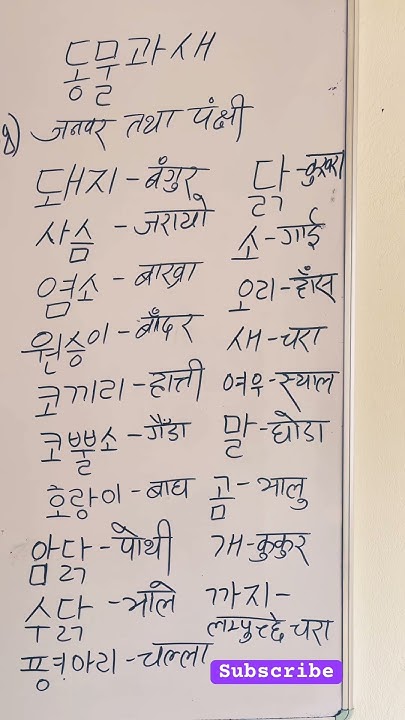 동물과새
१) जनवर तथा पंक्षी
돼지 - बंगुर
사슴 - जरायो
염소 - बाख्रा
원숭이 - बाँदर
코끼리 - हात्ती
코뿔소 - गैँडा
호랑이 - बाघ
암닭 - पोथी
수닭 - भाले
병아리 - चल्ला
닭 - कुखुरा
소 - गाई
오리 - हाँस
새 - चरा
여우 - स्याल
말 - घोडा
곰 - भालु
개 - कुकुर
까지 -
लाम्पुच्छे चरा
Subscribe